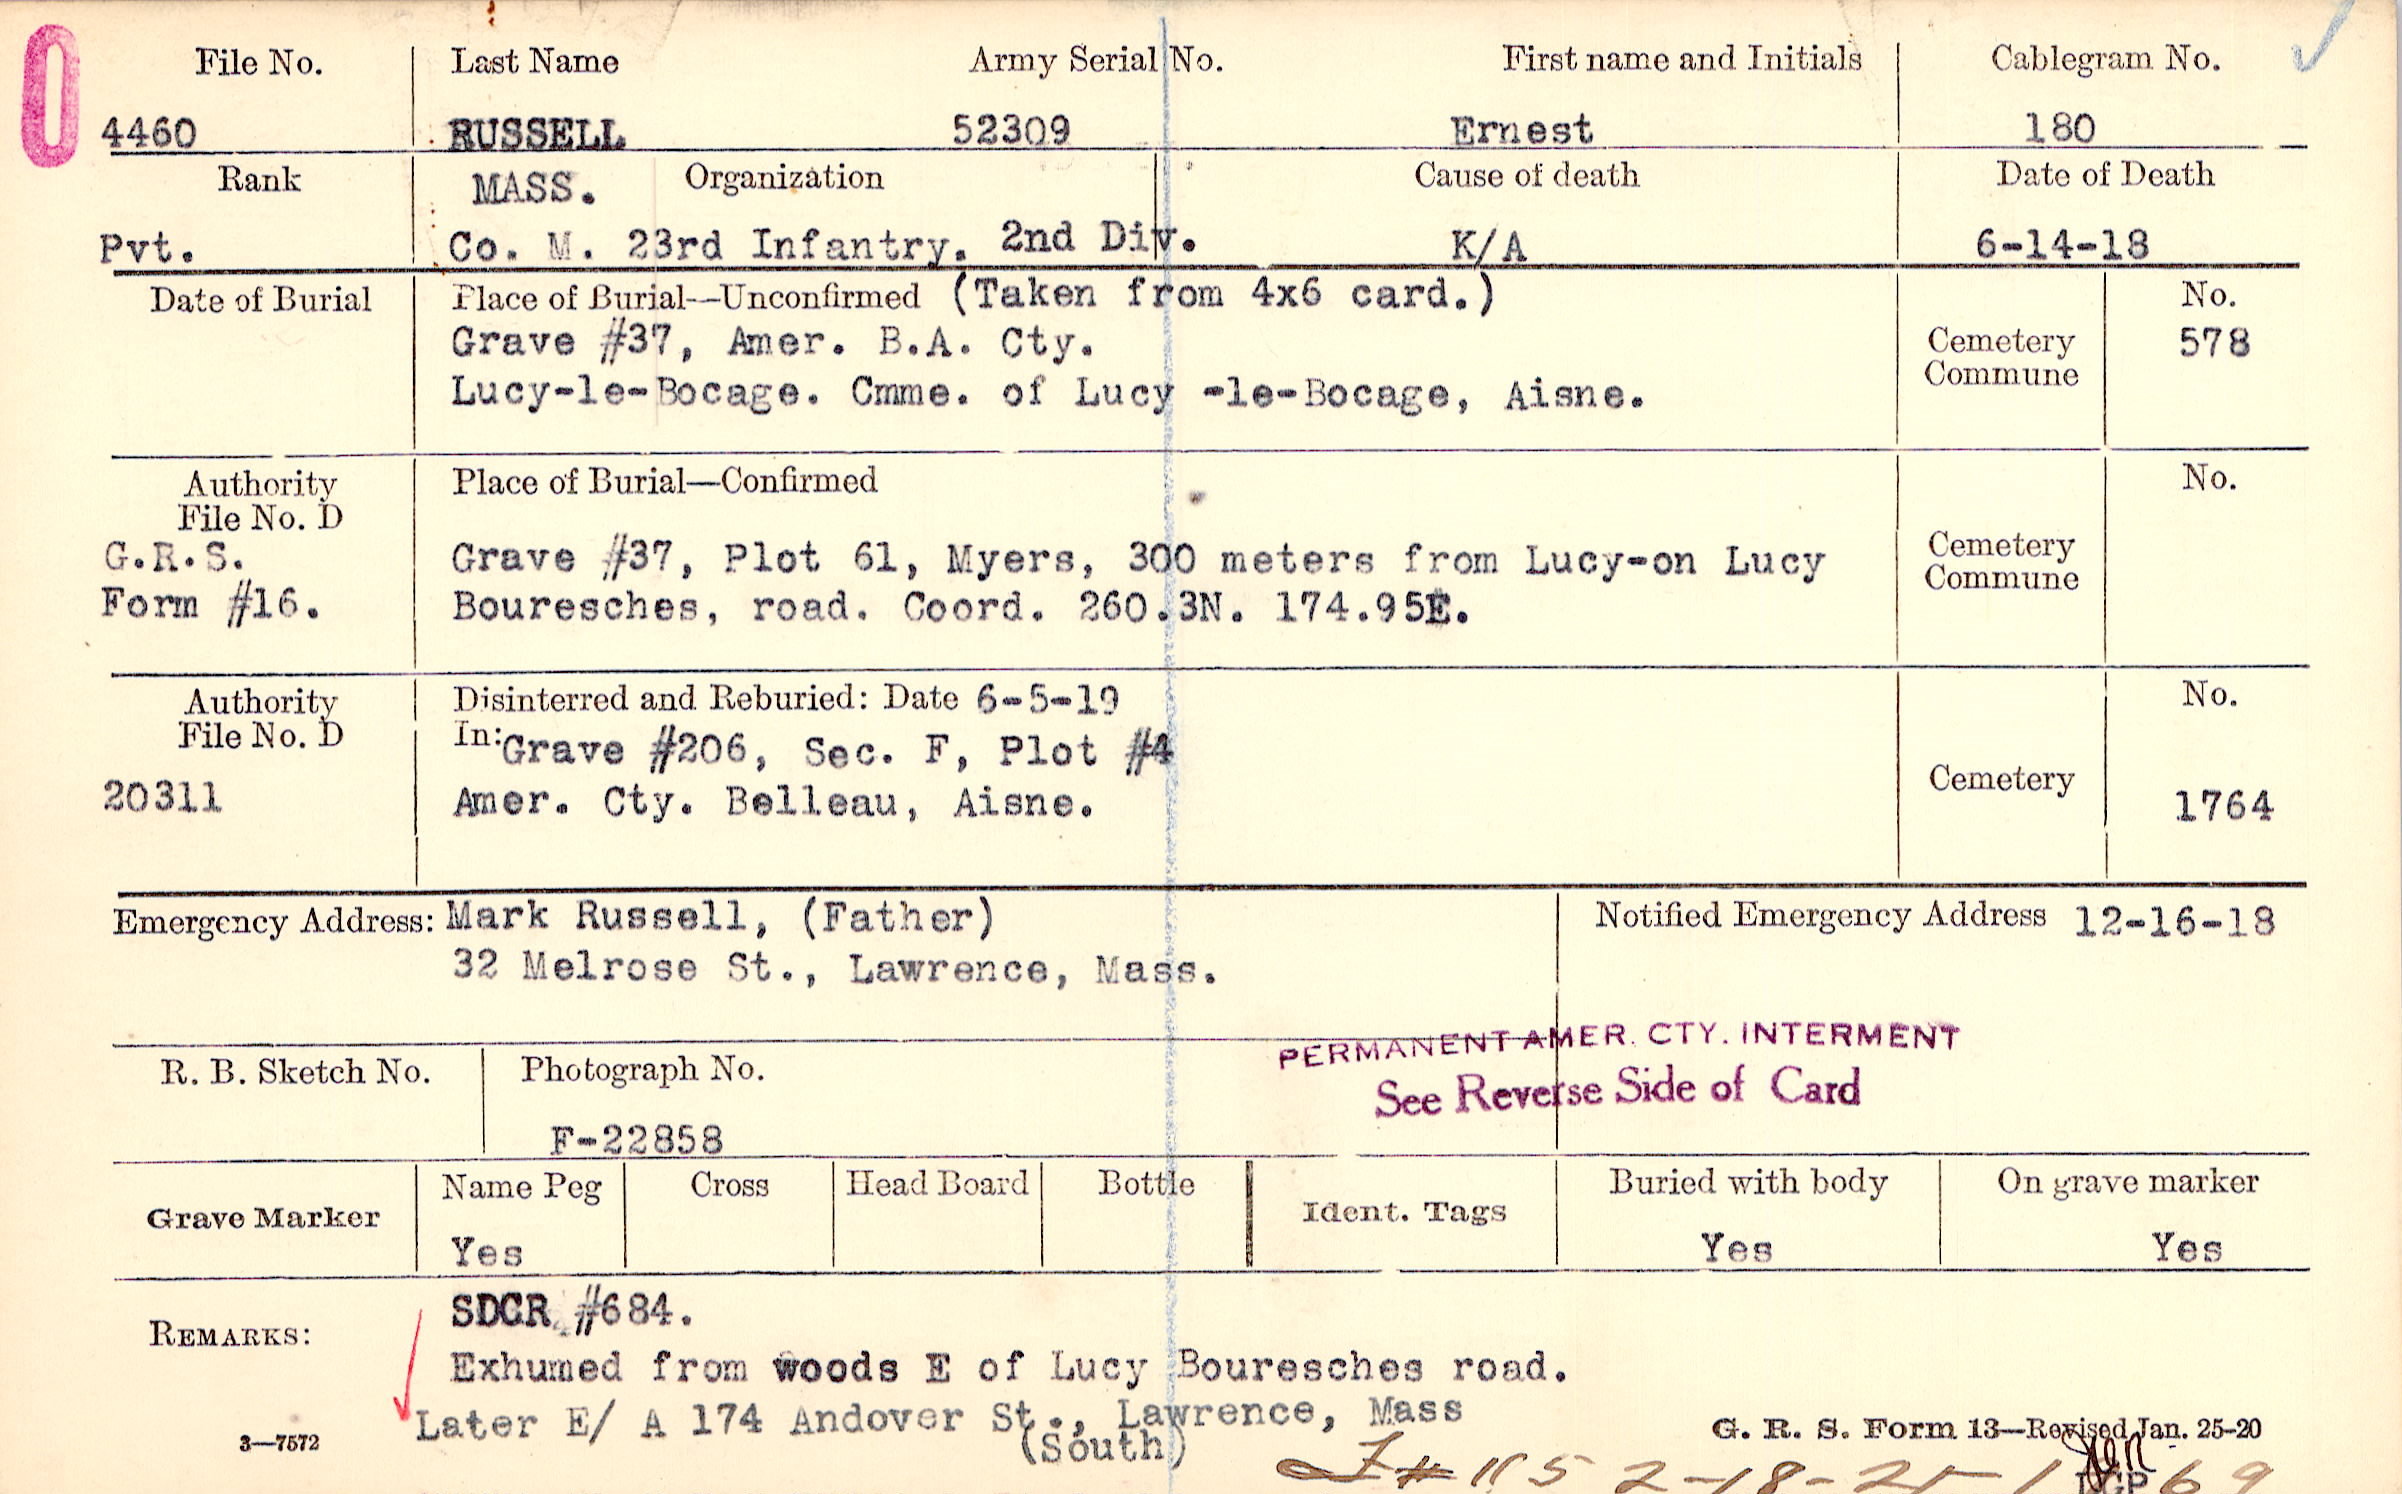 0
File No. Last Name Army Serial No. First name and Initials Cablegram No.
4460 RUSSELL 52309 Ernest 180
Rank MASS. Organization Cause of death Date of Death
Pvt. Co. M. 23rd Infantry. 2nd Div. K/A 6-14-18
Date of Burial Place of Burial—Unconfirmed (Taken from 4x6 card.) No.
Grave #37, Amer. B.A. Cty. Cemetery 578
Lucy-le-Bocage. Cmme. of Lucy -le-Bocage, Aisne. Commune
Authority Place of Burial—Confirmed No.
File No. D
G.R.S. Grave #37, Plot 61, Myers, 300 meters from Lucy-on Lucy Cemetery
Commune
Form #16. Bouresches, road. Coord. 260.3N. 174.95E.
Authority Disinterred and Reburied: Date 6-5-19 No.
File No. D In: Grave #206, Sec. F, Plot #4
Cemetery
20311 Amer. Cty. Belleau, Aisne. 1764
Emergency Address: Mark Russell, (Father) Notified Emergency Address 12-16-18
32 Melrose St., Lawrence, Mass.
PERMANENT AMER. CTY. INTERMENT
R. B. Sketch No. Photograph No. See Reverse Side of Card
F-22858
Name Peg Cross Head Board Bottle Buried with body On grave marker
Grave Marker Ident. Tags
Yes Yes Yes
SDCR #684.
REMARKS:
Exhumed from woods E of Lucy Bouresches road.
Later E/ A 174 Andover St., Lawrence, Mass
(South)
3—7572 G. R. S. Form 13—Revised Jan. 25-20